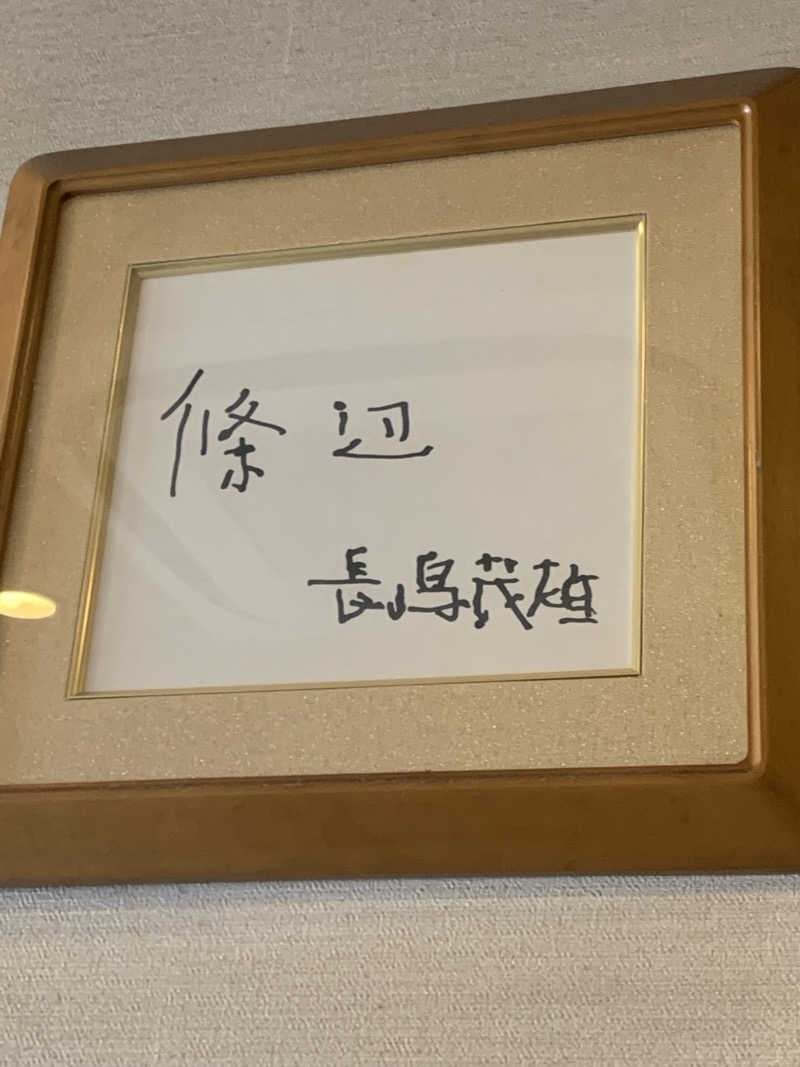 條辺
長嶋茂雄